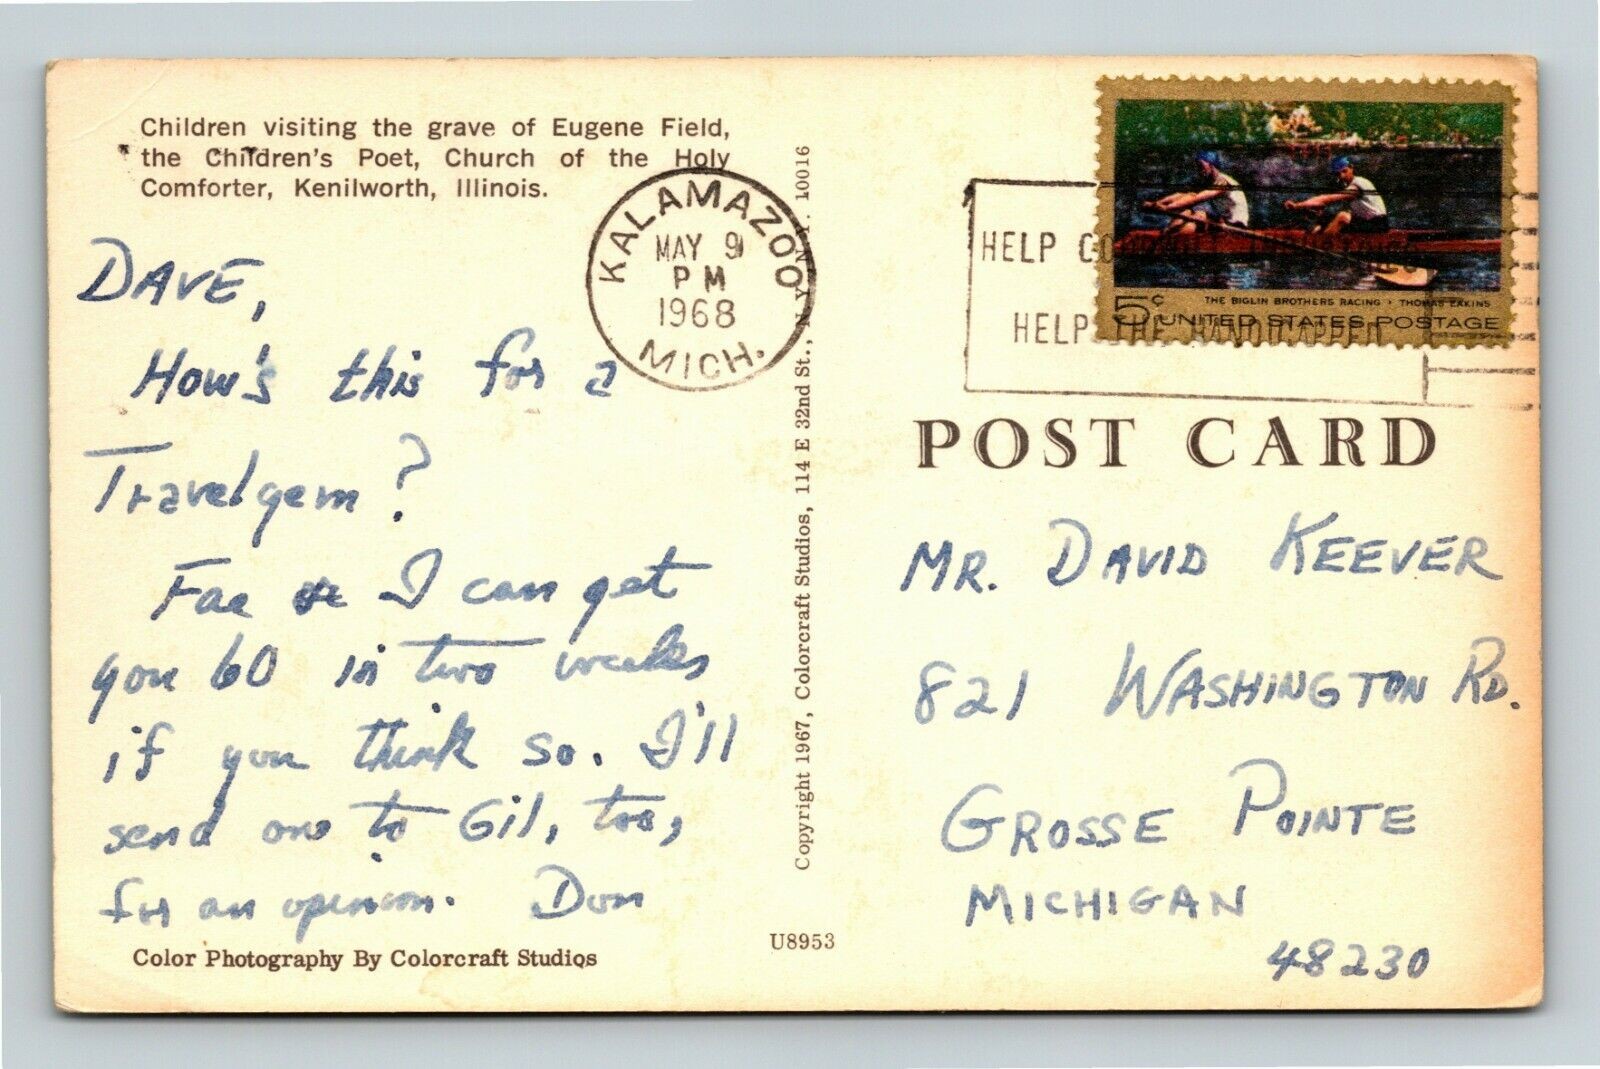 Children visiting the grave of Eugene Field,
the Children's Poet, Church of the Holy
Comforter, Kenilworth, Illinois.
DAVE,
How's this for a
Travelgem?
Fae I can get
you 60 in two weeks
if you think so. I'll
send one to Gil, too,
for an opinion. Don
Color Photography By Colorcraft Studios
U8953
Copyright 1967, Colorcraft Studios, 114 E 32nd St., N.Y., N.Y. 10016
KALAMAZOO
MAY 9
PM
1968
MICH.
HELP
HELP THE HANDICAPPED
5¢
THE BIGLIN BROTHERS RACING • THOMAS EAKINS
UNITED STATES POSTAGE
POST CARD
MR. DAVID KEEVER
821 WASHINGTON RD.
GROSSE POINTE
MICHIGAN
48230